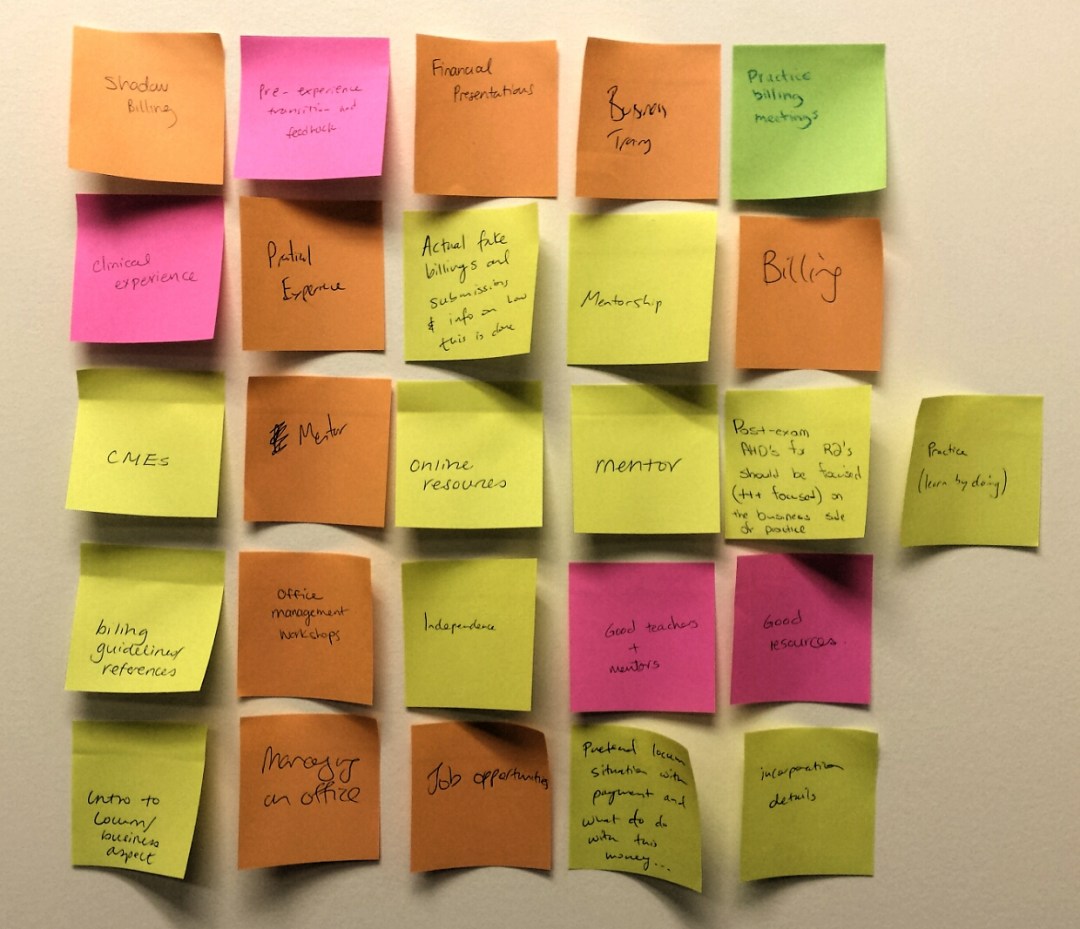 Shadow
Billing
Pre-experience
transition and
feedback
Financial
Presentations
Business
Practice
billing
meetings
Clinical
experience
Experience
Actual fake
billings and
submissions
& info on how
this is done
Mentorship
Billing
CMEs
Mentor
Online
resources
mentor
Post-exam
AHD's for R2's
should be focused
(+++ focused) on
the business side
of practice
Practice
(learn by doing)
biling
guidelines/
references
Office
management
Workshops
Independence
Good teachers
+
mentors
Good
resources.
Intro to
Locum/
business
aspect
Managing
an office
Job opportunities
Pretend locum
situation with
payment and
what do do
with this
money...
incorporation
details